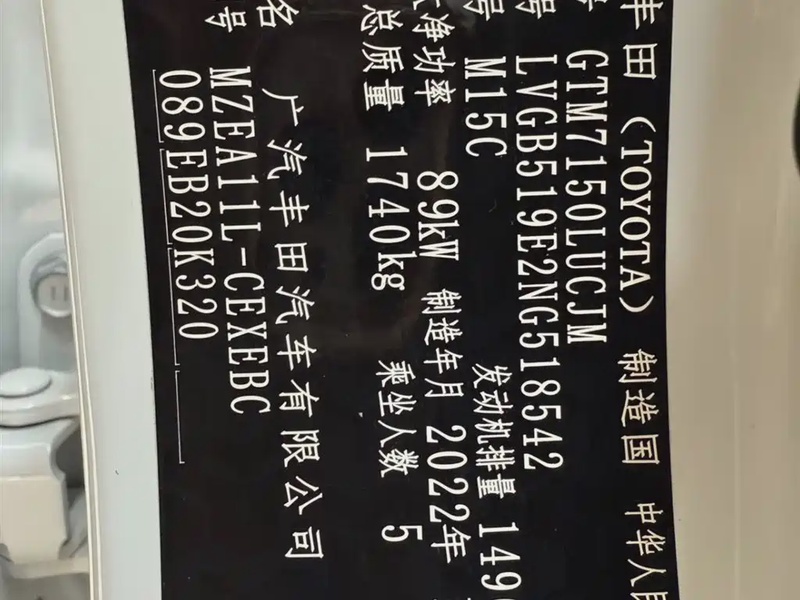 丰田(TOYOTA) 制造国 中华人民
号 GTM7150LUCJM
号 LVGB519E2NG518542
号 M15C 发动机排量 149
净功率 89kW 制造年月 2022年
总质量 1740kg 乘坐人数 5
名 广汽丰田汽车有限公司
号 MZEA11L-CEXEBC
089EB20K320